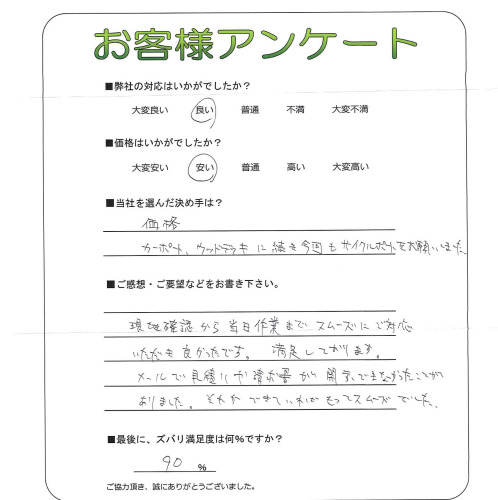 お客様アンケート
■弊社の対応はいかがでしたか？
大変良い 良い 普通 不満 大変不満
■価格はいかがでしたか？
大変安い 安い 普通 高い 大変高い
■当社を選んだ決め手は？
価格
カーポート、ウッドデッキに続き今回もサイクルポートをお願いしました。
■ご感想・ご要望などをお書き下さい。
現地確認から当日作業までスムーズにご対応
いただき良かったです。満足しております。
メールで見積りか請求書が開けできなかったことが
ありました。それができていればもってスムーズでした。
■最後に、ズバリ満足度は何％ですか？
90 %
ご協力頂き、誠にありがとうございました。